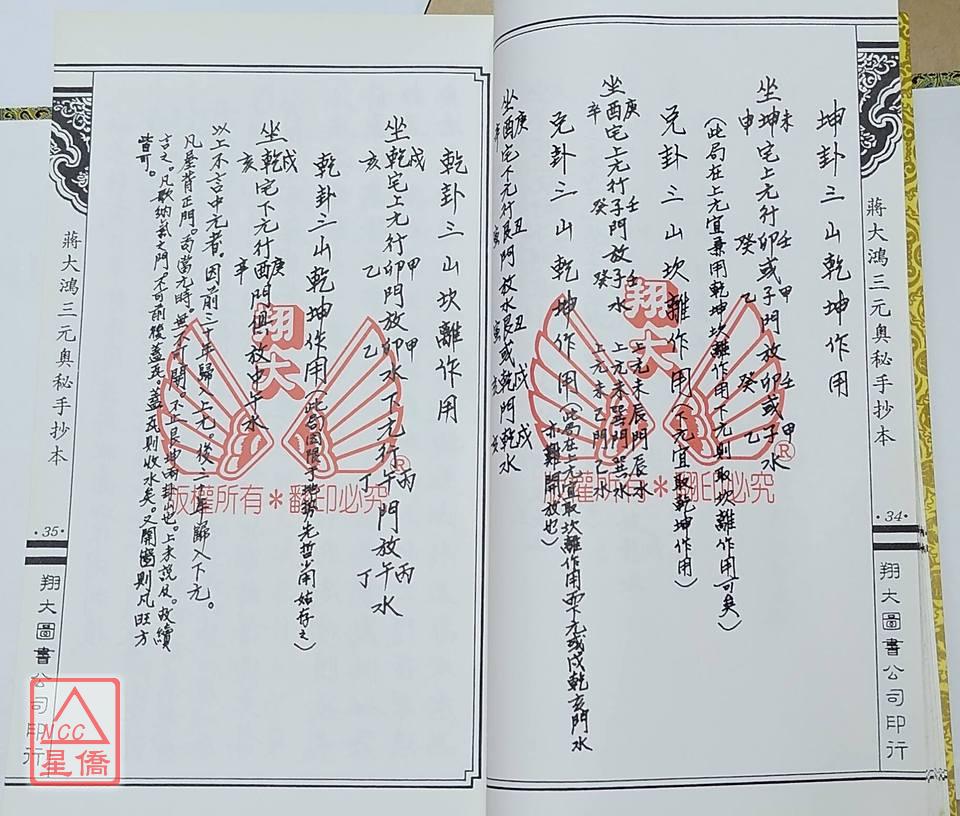 蔣大鴻三元奧秘手抄本
·34·
翔大圖書公司印行
坤卦三山乾坤作用
坐未坤申宅上元行壬子癸或甲卯乙門放甲卯乙或壬子癸水
(此局在上元宜兼用乾坤坎離作用下元則取坎離作用可矣)
兌卦三山坎離作用(下元宜取乾坤作用)
坐庚酉辛宅上元行壬子癸門放壬子癸水
上元未辰門辰水
上元未巽門巽水
上元未乙門乙水
兌卦三山乾坤作用(此局在上元宜取坎離作用而下元或戌乾亥門水亦難開放也)
坐庚酉辛宅下元行丑艮寅門放水丑艮寅或戌乾亥門戌乾亥水
乾卦三山坎離作用
坐戌乾亥宅上元行甲卯乙門放甲卯乙水下元行丙午丁門放丙午丁水
乾卦三山乾坤作用(此局因限于地勢先哲少用姑存之)
坐戌乾亥宅下元行庚酉辛門俱放中午水
以上不言中元者。因前二十年歸入上元。後二十年歸入下元。
凡基肯正門。而當元時。無不可開。不止艮坤兩卦也。上未說及。故續
言之。凡欲納氣之門。不可前後蓋瓦。蓋瓦則收水矣。又開窗則凡旺方
皆可。
蔣大鴻三元奧秘手抄本
·35·
翔大圖書公司印行
翔大
®
版權所有＊翻印必究
翔大
®
權所有＊翻印必究
NCC
星僑